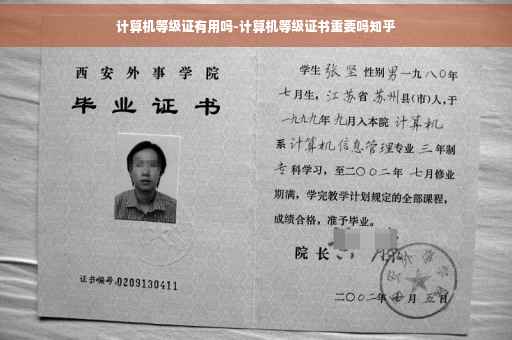 计算机等级证有用吗-计算机等级证书重要吗知乎
西安外事学院
毕业证书
证书编号:0209130411
学生 张坚 性别 男 一九八〇年
七月生, 江苏省 苏州县(市)人, 于
一九九九年 九月入本院 计算机
系 计算机信息管理专业 三 年制
专科学习, 至二〇〇二年 七月修业
期满, 学完教学计划规定的全部课程,
成绩合格, 准予毕业。
院长
二〇〇二年 月 五日